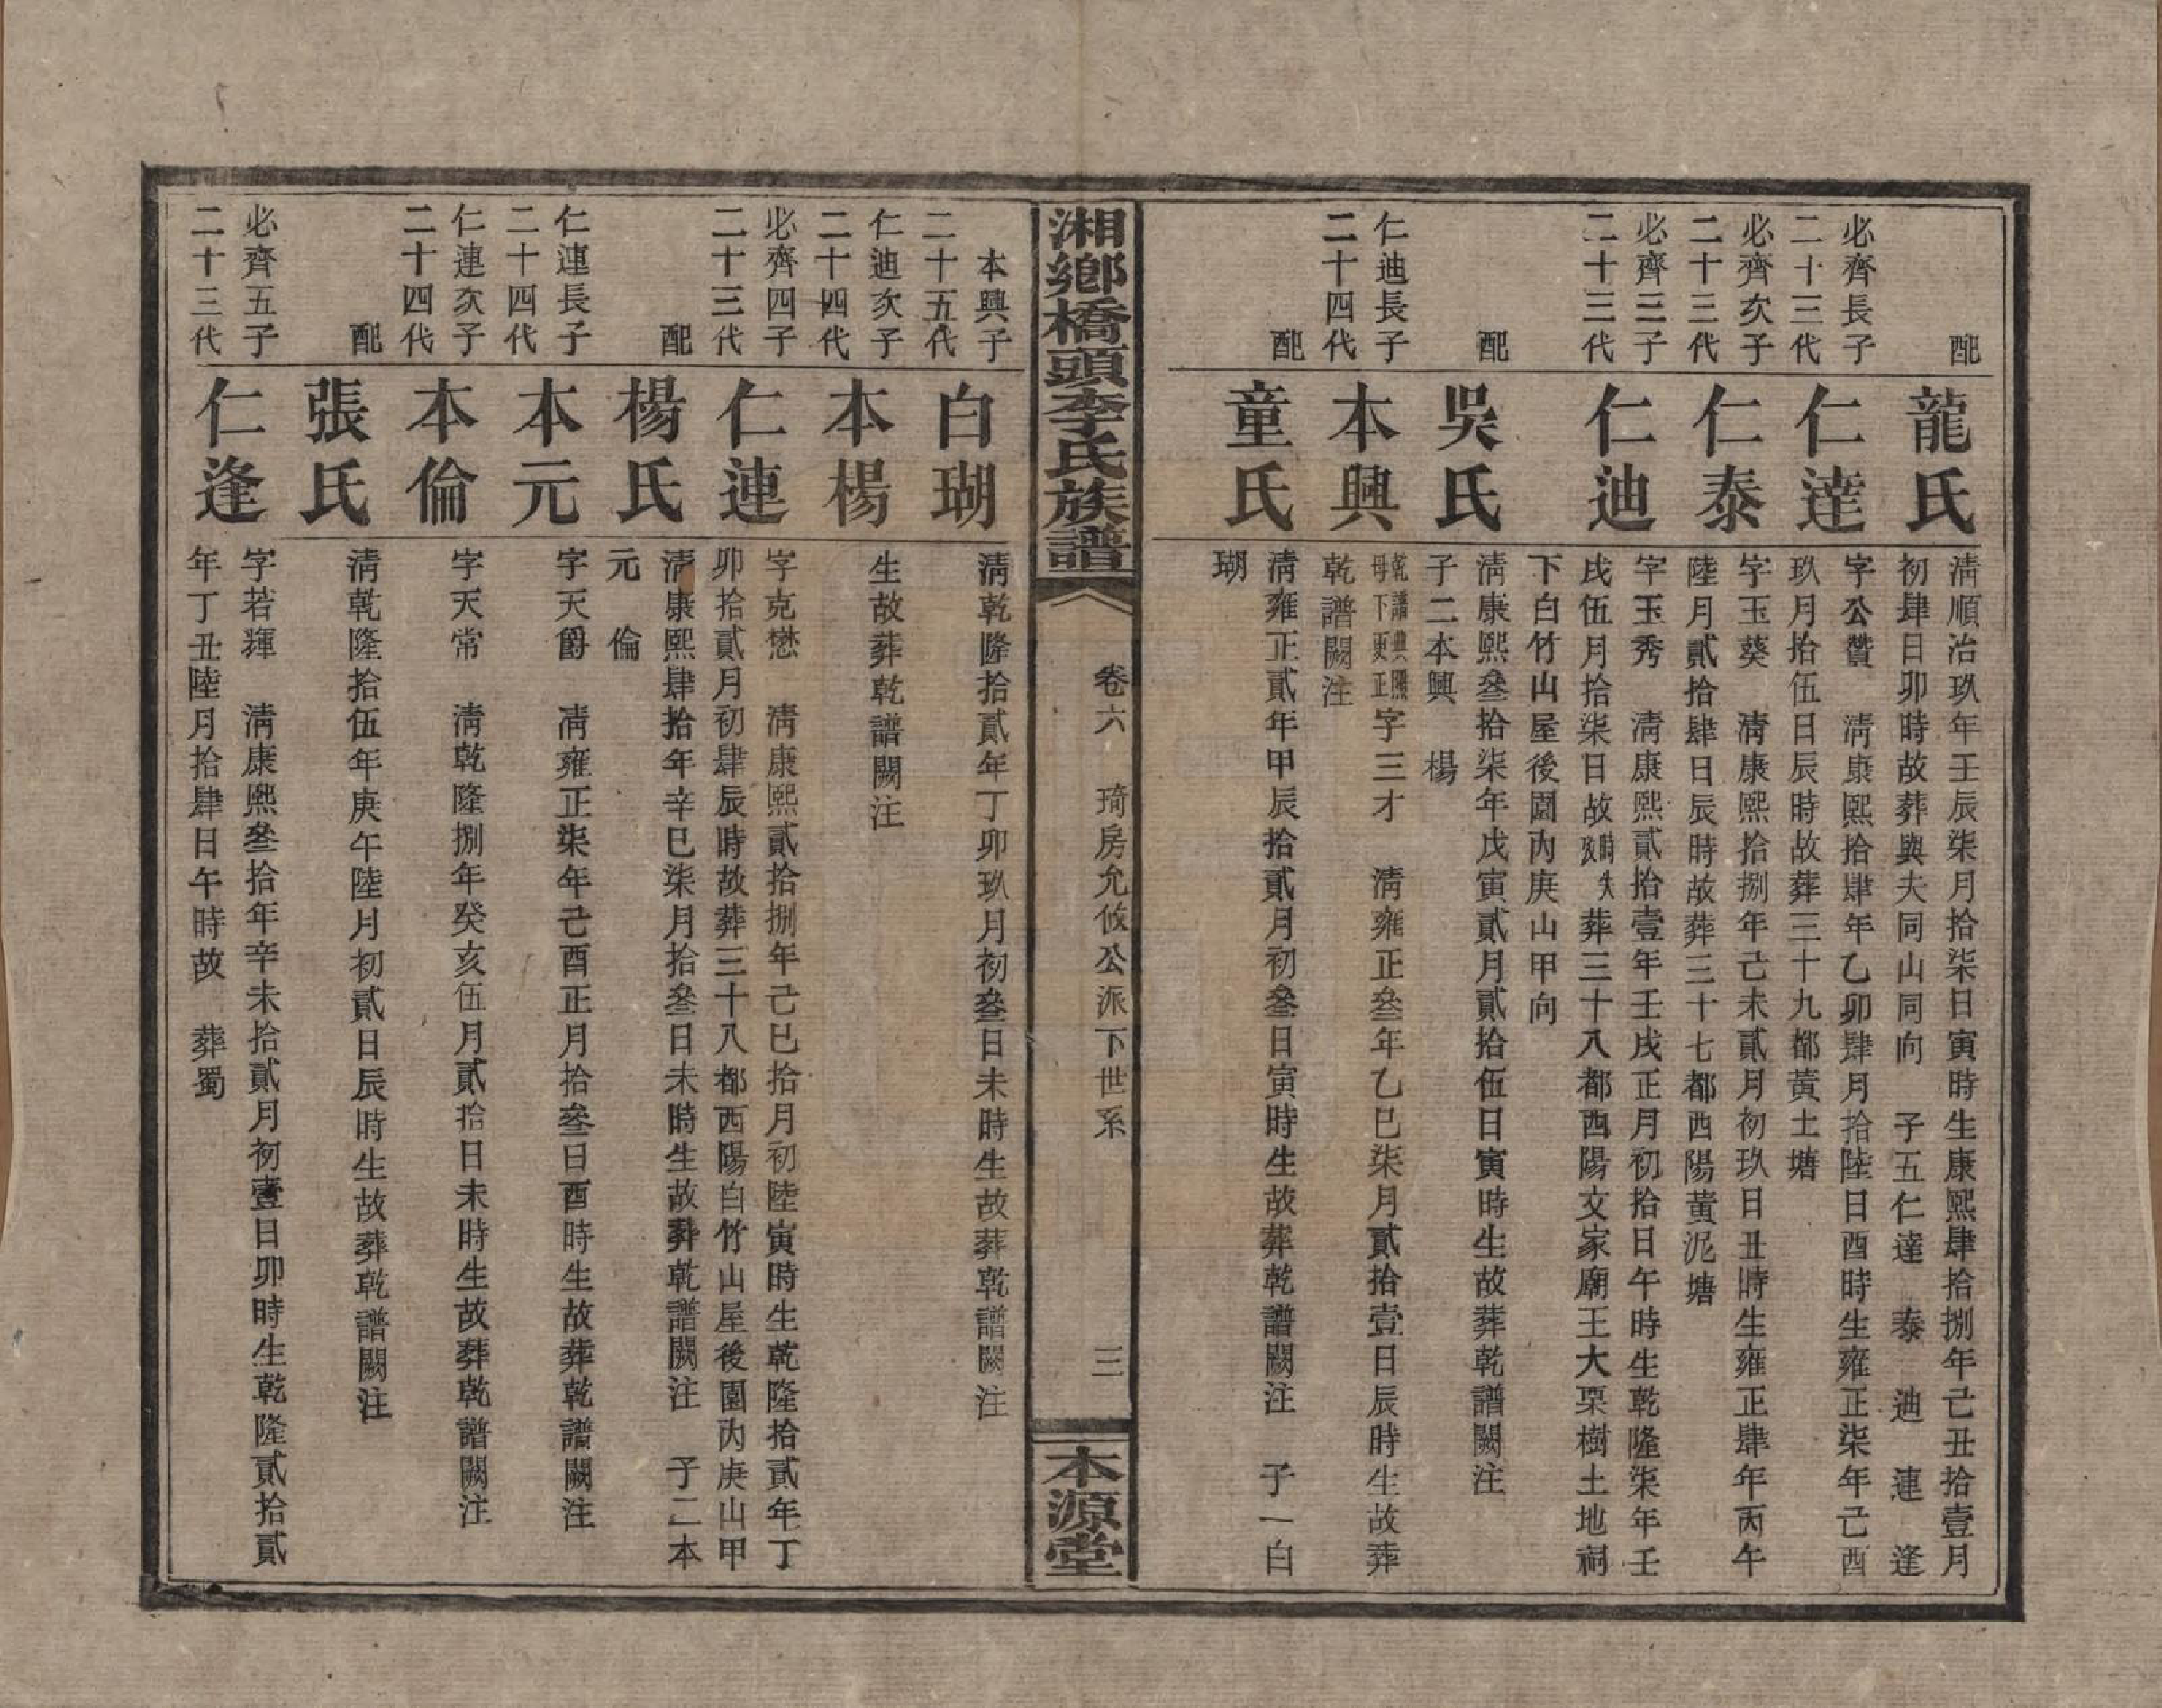 配
龍氏
清順治玖年壬辰柒月拾柒日寅時生康熙肆拾捌年己丑拾壹月
初肆日卯時故葬與夫同山同向　子五仁達　泰　迪　連　逢
必齊長子
二十三代
仁達
字公贊　清康熙拾肆年乙卯肆月拾陸日酉時生雍正柒年己酉
玖月拾伍日辰時故葬三十九都黃土塘
必齊次子
二十三代
仁泰
字玉葵　清康熙拾捌年己未貳月初玖日丑時生雍正肆年丙午
陸月貳拾肆日辰時故葬三十七都西陽黃泥塘
必齊三子
二十三代
仁迪
字玉秀　清康熙貳拾壹年壬戌正月初拾日午時生乾隆柒年壬
戌伍月拾柒日故時失孩葬三十八都西陽文家廟王大栗樹土地祠
下白竹山屋後園內庚山甲向
配
吳氏
清康熙叄拾柒年戊寅貳月貳拾伍日寅時生故葬乾譜闕注
子二本興　楊
仁迪長子
二十四代
本興
乾譜典熙
母下更正
字三才　清雍正叄年乙巳柒月貳拾壹日辰時生故葬
乾譜闕注
配
童氏
清雍正貳年甲辰拾貳月初叄日寅時生故葬乾譜闕注　子一白
瑚
湘鄉橋頭李氏族譜
卷六　琦房允攸公派下世系
三
本源堂
本興子
二十五代
白瑚
清乾隆拾貳年丁卯玖月初叄日未時生故葬乾譜闕注
仁迪次子
二十四代
本楊
生故葬乾譜闕注
必齊四子
二十三代
仁連
字克懋　清康熙貳拾捌年己巳拾月初陸寅時生乾隆拾貳年丁
卯拾貳月初肆辰時故葬三十八都西陽白竹山屋後園內庚山甲
配
楊氏
清康熙肆拾年辛巳柒月拾叄日未時生故葬乾譜闕注　子二本
元　倫
仁連長子
二十四代
本元
字天爵　清雍正柒年己酉正月拾叄日酉時生故葬乾譜闕注
仁連次子
二十四代
本倫
字天常　清乾隆捌年癸亥伍月貳拾日未時生故葬乾譜闕注
配
張氏
清乾隆拾伍年庚午陸月初貳日辰時生故葬乾譜闕注
必齊五子
二十三代
仁逢
字若輝　清康熙叄拾年辛未拾貳月初壹日卯時生乾隆貳拾貳
年丁丑陸月拾肆日午時故　葬蜀